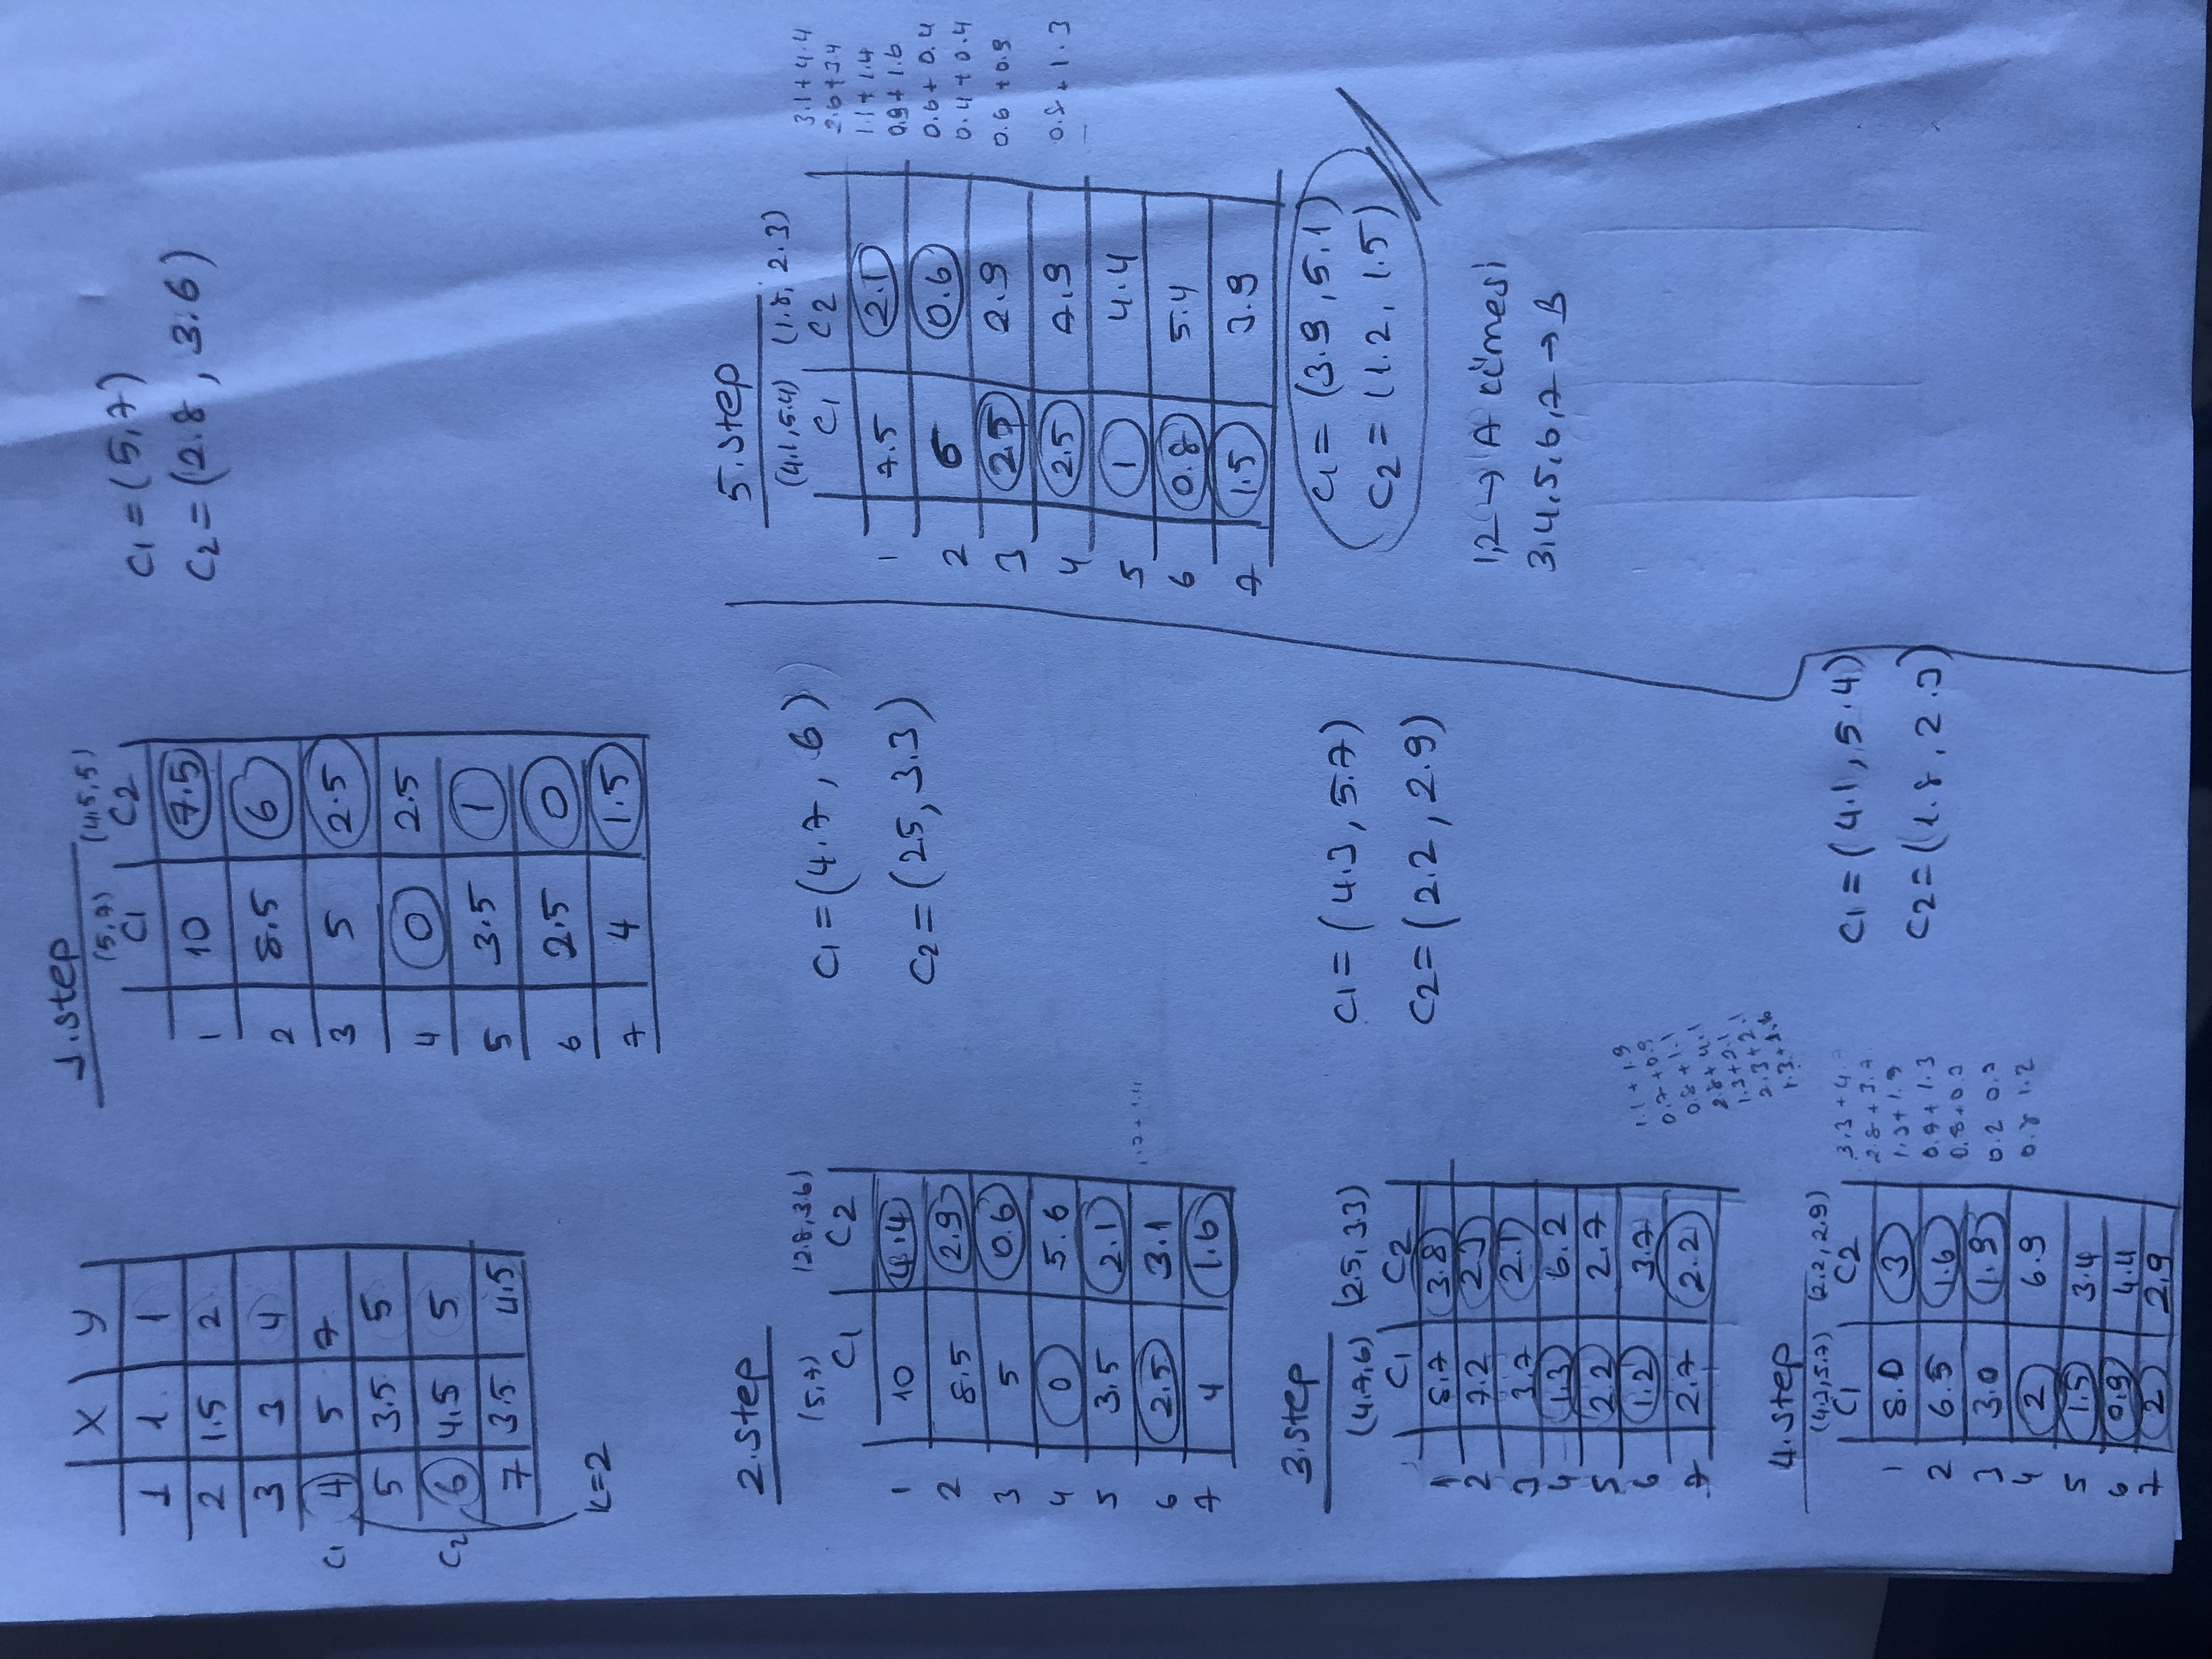 X Y
1 1 1
2 1.5 2
3 3 4
C1 4 5 7
5 3.5 5
C2 6 4.5 5
7 3.5 4.5
K=2
1.step
(5,7) (4.5,5)
C1 C2
1 10 7.5
2 8.5 6
3 5 2.5
4 0 2.5
5 3.5 1
6 2.5 0
7 4 1.5
C1=(5,7)
C2=(2.8, 3.6)
2.step
(5,7) (2.8,3.6)
C1 C2
1 10 4.4
2 8.5 2.9
3 5 0.6
4 0 5.6
5 3.5 2.1
6 2.5 3.1
7 4 1.6
C1=(4.7, 6)
C2=(25, 3.3)
3.step
(4.7,6) (2.5,3.3)
C1 C2
1 8.7 3.8
2 7.2 2.3
3 3.7 2.1
4 1.3 6.2
5 2.2 2.7
6 1.2 3.7
7 2.7 2.2
1.1+1.9
0.7+0.9
0.8+1.1
2.8+4.1
1.3+2.1
2.3+2.1
1.3+1.6
C1=(4.3, 5.7)
C2=(2.2, 2.9)
4.step
(4.3,5.7) (2.2,2.9)
C1 C2
1 8.0 3
2 6.5 1.6
3 3.0 1.9
4 2 6.9
5 1.5 3.4
6 0.9 4.4
7 2 2.9
3.3+4.
2.8+3.7
1.3+1.9
0.9+1.3
0.8+0.3
0.2 0.3
0.8 1.2
C1=(4.1, 5.4)
C2=(1.8, 2.3)
5.step
(4.1,5.4) (1.8, 2.3)
C1 C2
1 7.5 2.1
2 6 0.6
3 2.5 2.9
4 2.5 7.9
5 1 4.4
6 0.8 5.4
7 1.5 3.9
3.1+4.4
2.6+3.4
1.1+1.4
0.9+1.6
0.6+0.4
0.4+0.4
0.6+0.9
0.8+1.3
C1=(3.9, 5.1)
C2=(1.2, 1.5)
1,2→A kümesi
3,4,5,6,7→B